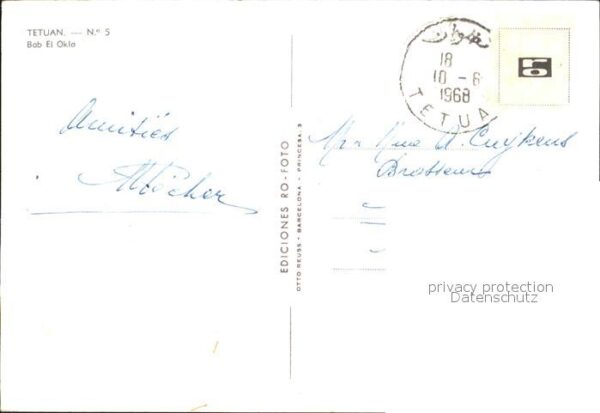 TETUAN. — N.º 5
Bab El Okla
تطوان
18
10 - 6
1968
TETUA
Amitiés
Mr Mme A. Cuykens
Brasseur
EDICIONES RO - FOTO
OTTO REUSS - BARCELONA - PRINCESA, 3
privacy protection
Datenschutz